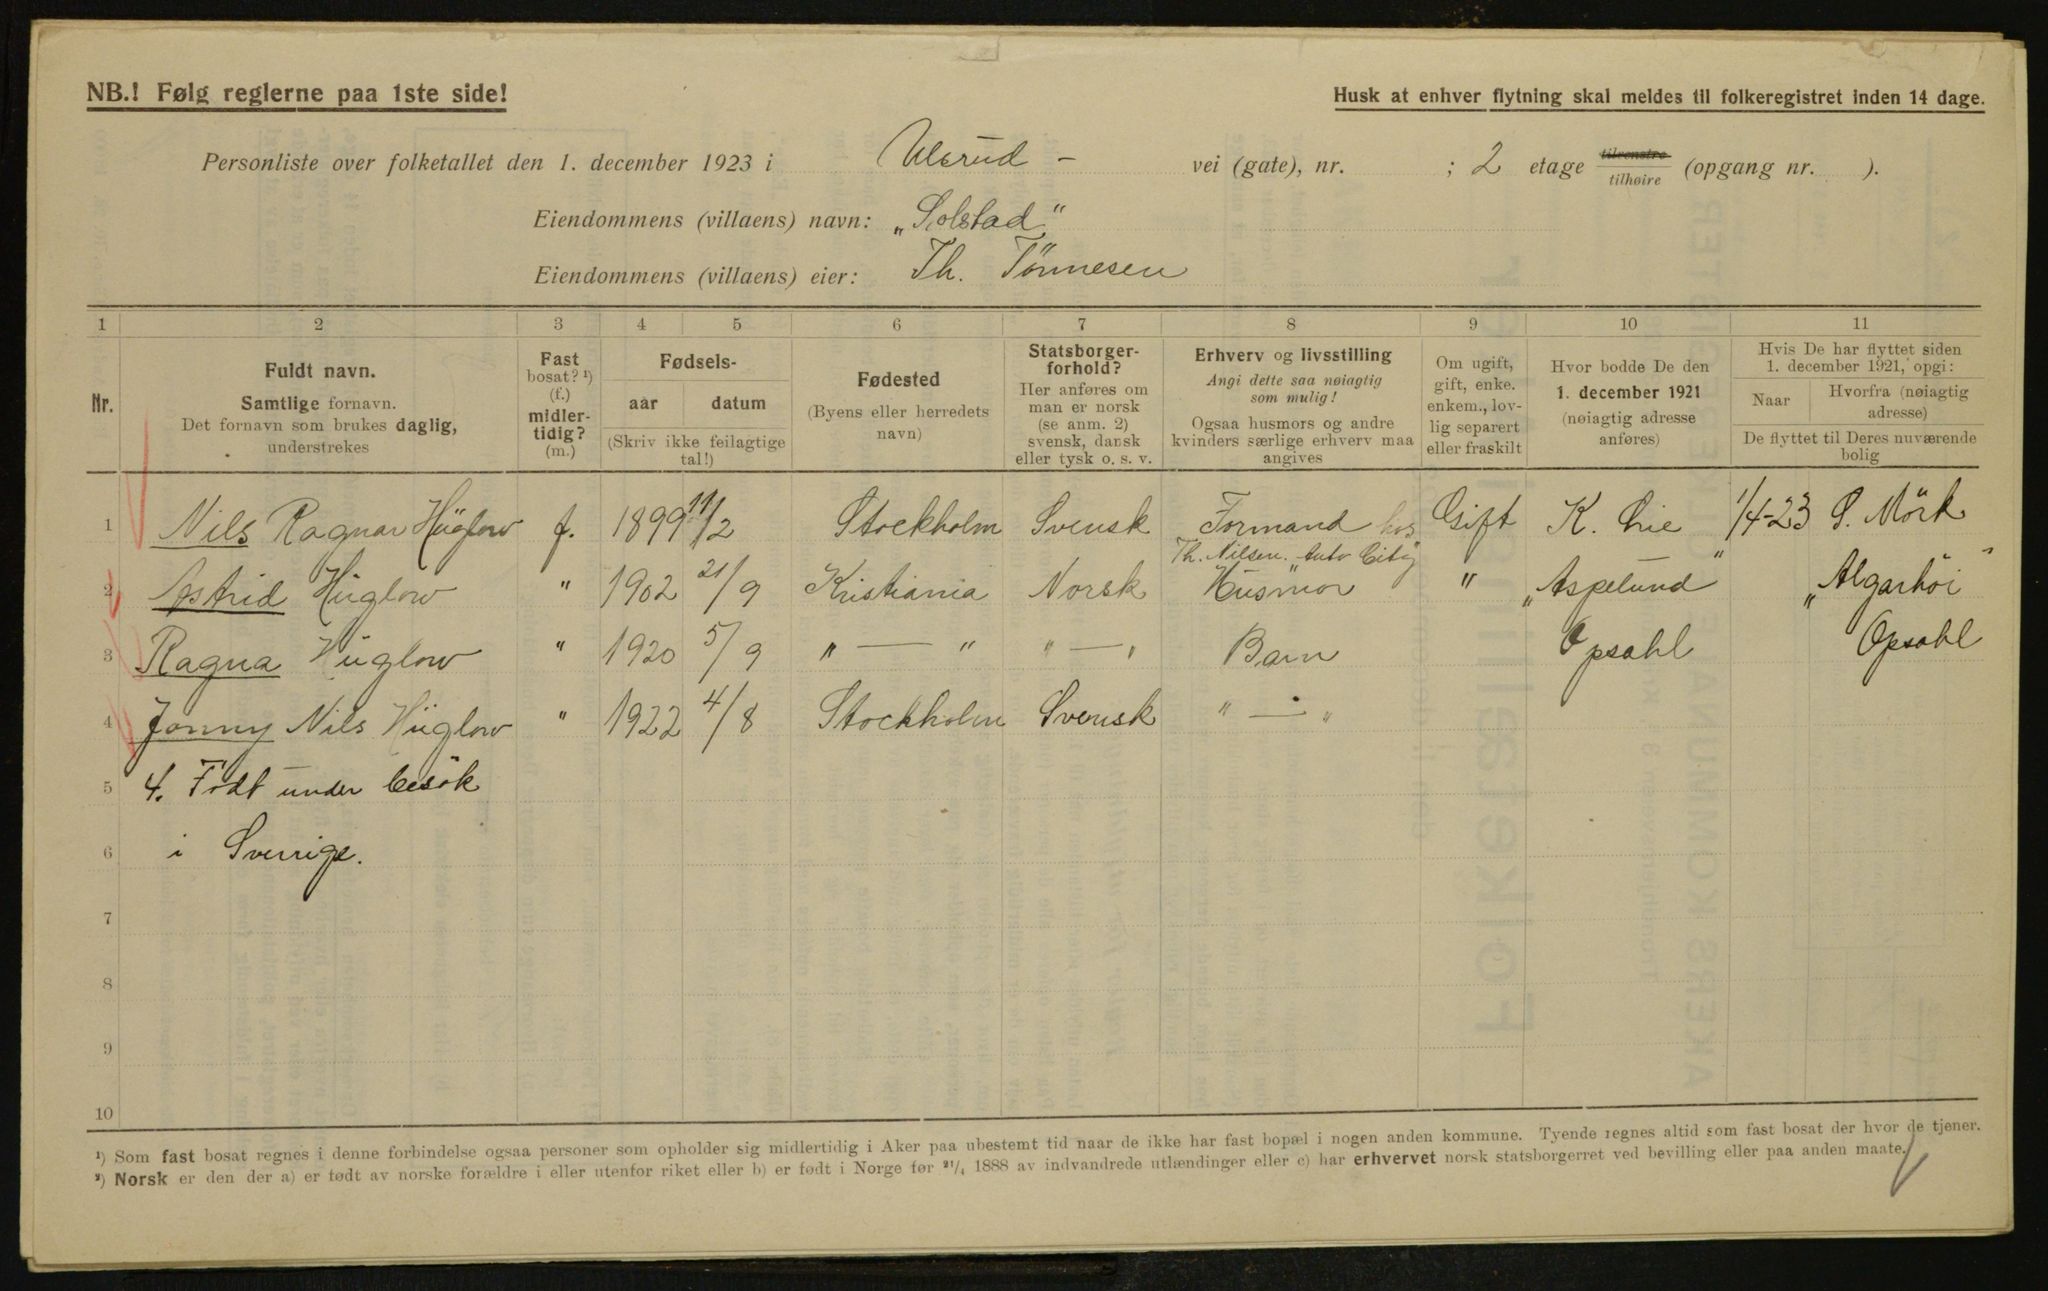 NB.! Følg reglerne paa 1ste side!
Husk at enhver flytning skal meldes til folkeregistret inden 14 dage.
Personliste over folketallet den 1. december 1923 i Ulsrud - vei (gate), nr. ; 2 etage tilvenstre tilhøire (opgang nr. ).
Eiendommens (villaens) navn: „Solstad"
Eiendommens (villaens) eier: Th. Tönnesen
1 2 3 4 5 6 7 8 9 10 11
Nr.
Fuldt navn.
Samtlige fornavn.
Det fornavn som brukes daglig,
understrekes
Fast
bosat? ¹)
(f.)
midler-
tidig?
(m.)
Fødsels-
aar datum
(Skriv ikke feilagtige
tal!)
Fødested
(Byens eller herredets
navn)
Statsborger-
forhold?
Her anføres om
man er norsk
(se anm. 2)
svensk, dansk
eller tysk o. s. v.
Erhverv og livsstilling
Angi dette saa nøiagtig
som mulig!
Ogsaa husmors og andre
kvinders særlige erhverv maa
angives
Om ugift,
gift, enke.
enkem., lov-
lig separert
eller fraskilt
Hvor bodde De den
1. december 1921
(nøiagtig adresse
anføres)
Hvis De har flyttet siden
1. december 1921, opgi:
Naar
Hvorfra (nøiagtig
adresse)
De flyttet til Deres nuværende
bolig
1 Nils Ragnar Hüglow f. 1899 11/2 Stockholm Svensk Formand hos Gift K. Lie 1/4-23 S. Mörk
Th. Nilsen. „Auto City"
2 Astrid Hüglow " 1902 21/9 Kristiania Norsk Husmor " „Aspelund" „Algarhöi"
3 Ragna Hüglow " 1920 5/9 " — " " — " Barn Opsahl Opsahl
4 Jonny Nils Hüglow " 1922 4/8 Stockholm Svensk " — "
5 4. Födt under besök
6 i Sverrige.
7
8
9
10
¹) Som fast bosat regnes i denne forbindelse ogsaa personer som opholder sig midlertidig i Aker paa ubestemt tid naar de ikke har fast bopæl i nogen anden kommune. Tyende regnes altid som fast bosat der hvor de tjener.
²) Norsk er den der a) er født av norske forældre i eller utenfor riket eller b) er født i Norge før ²¹/₄ 1888 av indvandrede utlændinger eller c) har erhvervet norsk statsborgerret ved bevilling eller paa anden maate.